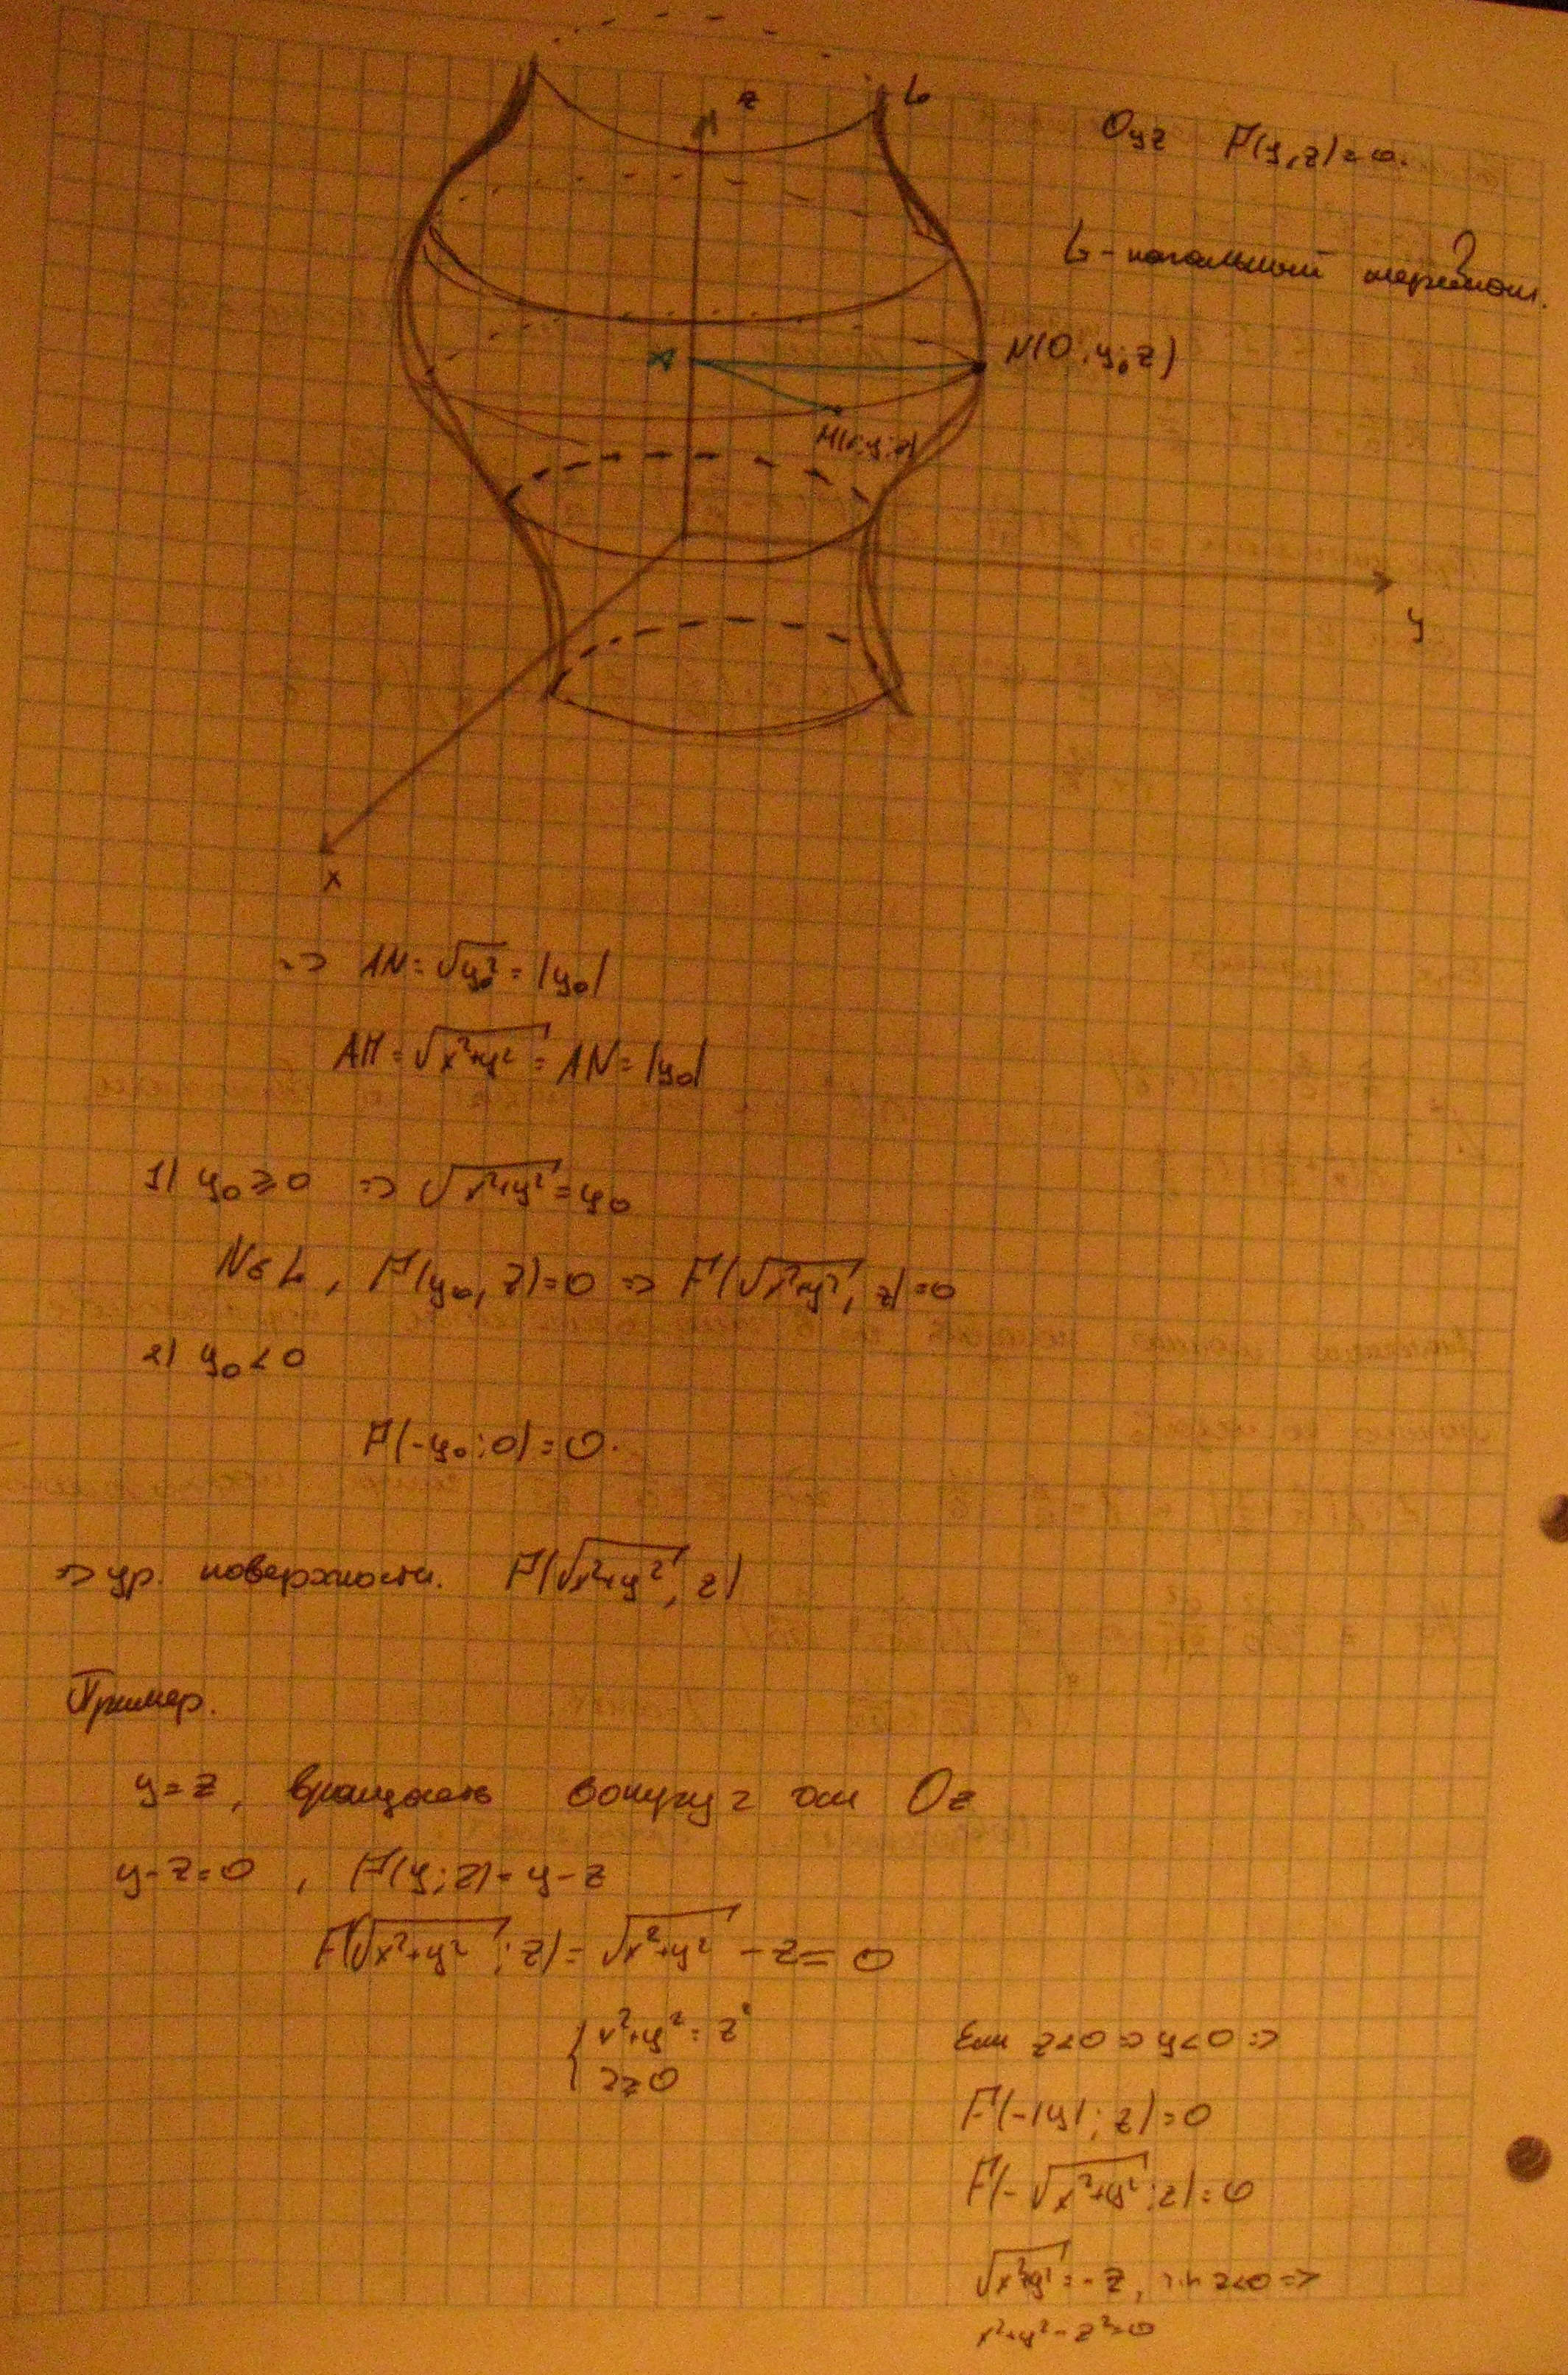 z
L
Oyz F(y,z)=0.
L - начальный меридиан.
?
A
N(0;y₀;z)
M(x;y;z)
y
x
=> AN=√y₀²=|y₀|
AM=√x²+y²=AN=|y₀|
1) y₀≥0 => √x²+y²=y₀
N∈L, F(y₀, z)=0 => F(√x²+y², z)=0
2) y₀<0
F(-y₀;0)=0.
=> ур. поверхности. F(√x²+y², z)
Пример.
y=z, вращать вокруг оси Oz
y-z=0, F(y;z)=y-z
F(√x²+y²;z)=√x²+y² -z=0
{ x²+y²=z²
z≥0
Если z<0 => y<0 =>
F(-|y|;z)=0
F(-√x²+y²;z)=0
√x²+y²=-z, z<0 =>
x²+y²-z²=0